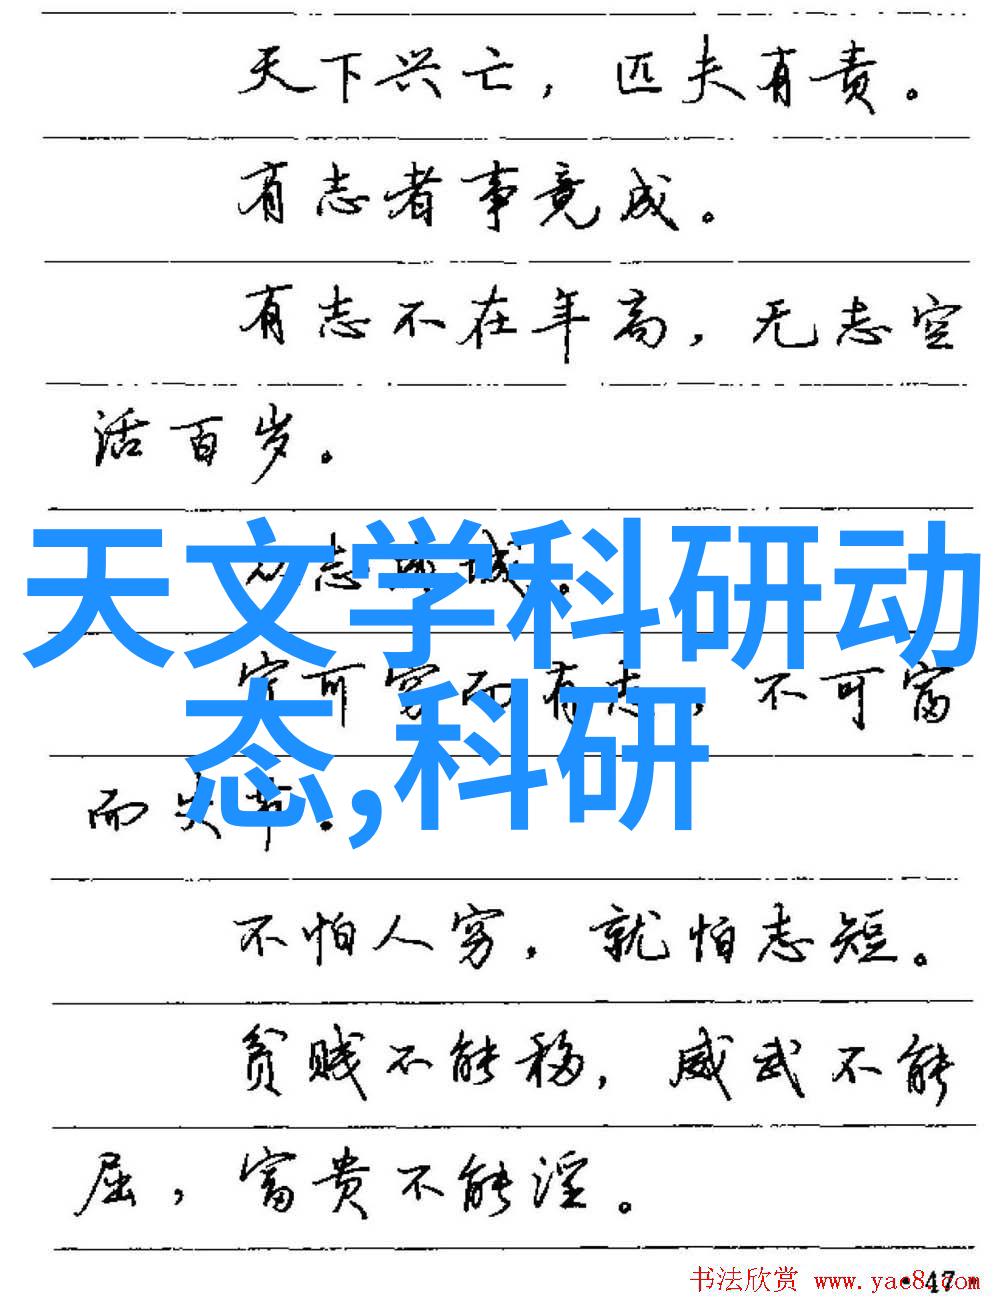 天下兴亡，匹夫有责。
有志者事竟成。
有志不在年高，无志空
活百岁。
众志成城。
天文学科研动
宁可穷而有志，不可富
态,科研
而失节。
不怕人穷，就怕志短。
贫贱不能移，威武不能
屈，富贵不能淫。
·47·
书法欣赏 www.yac8.com